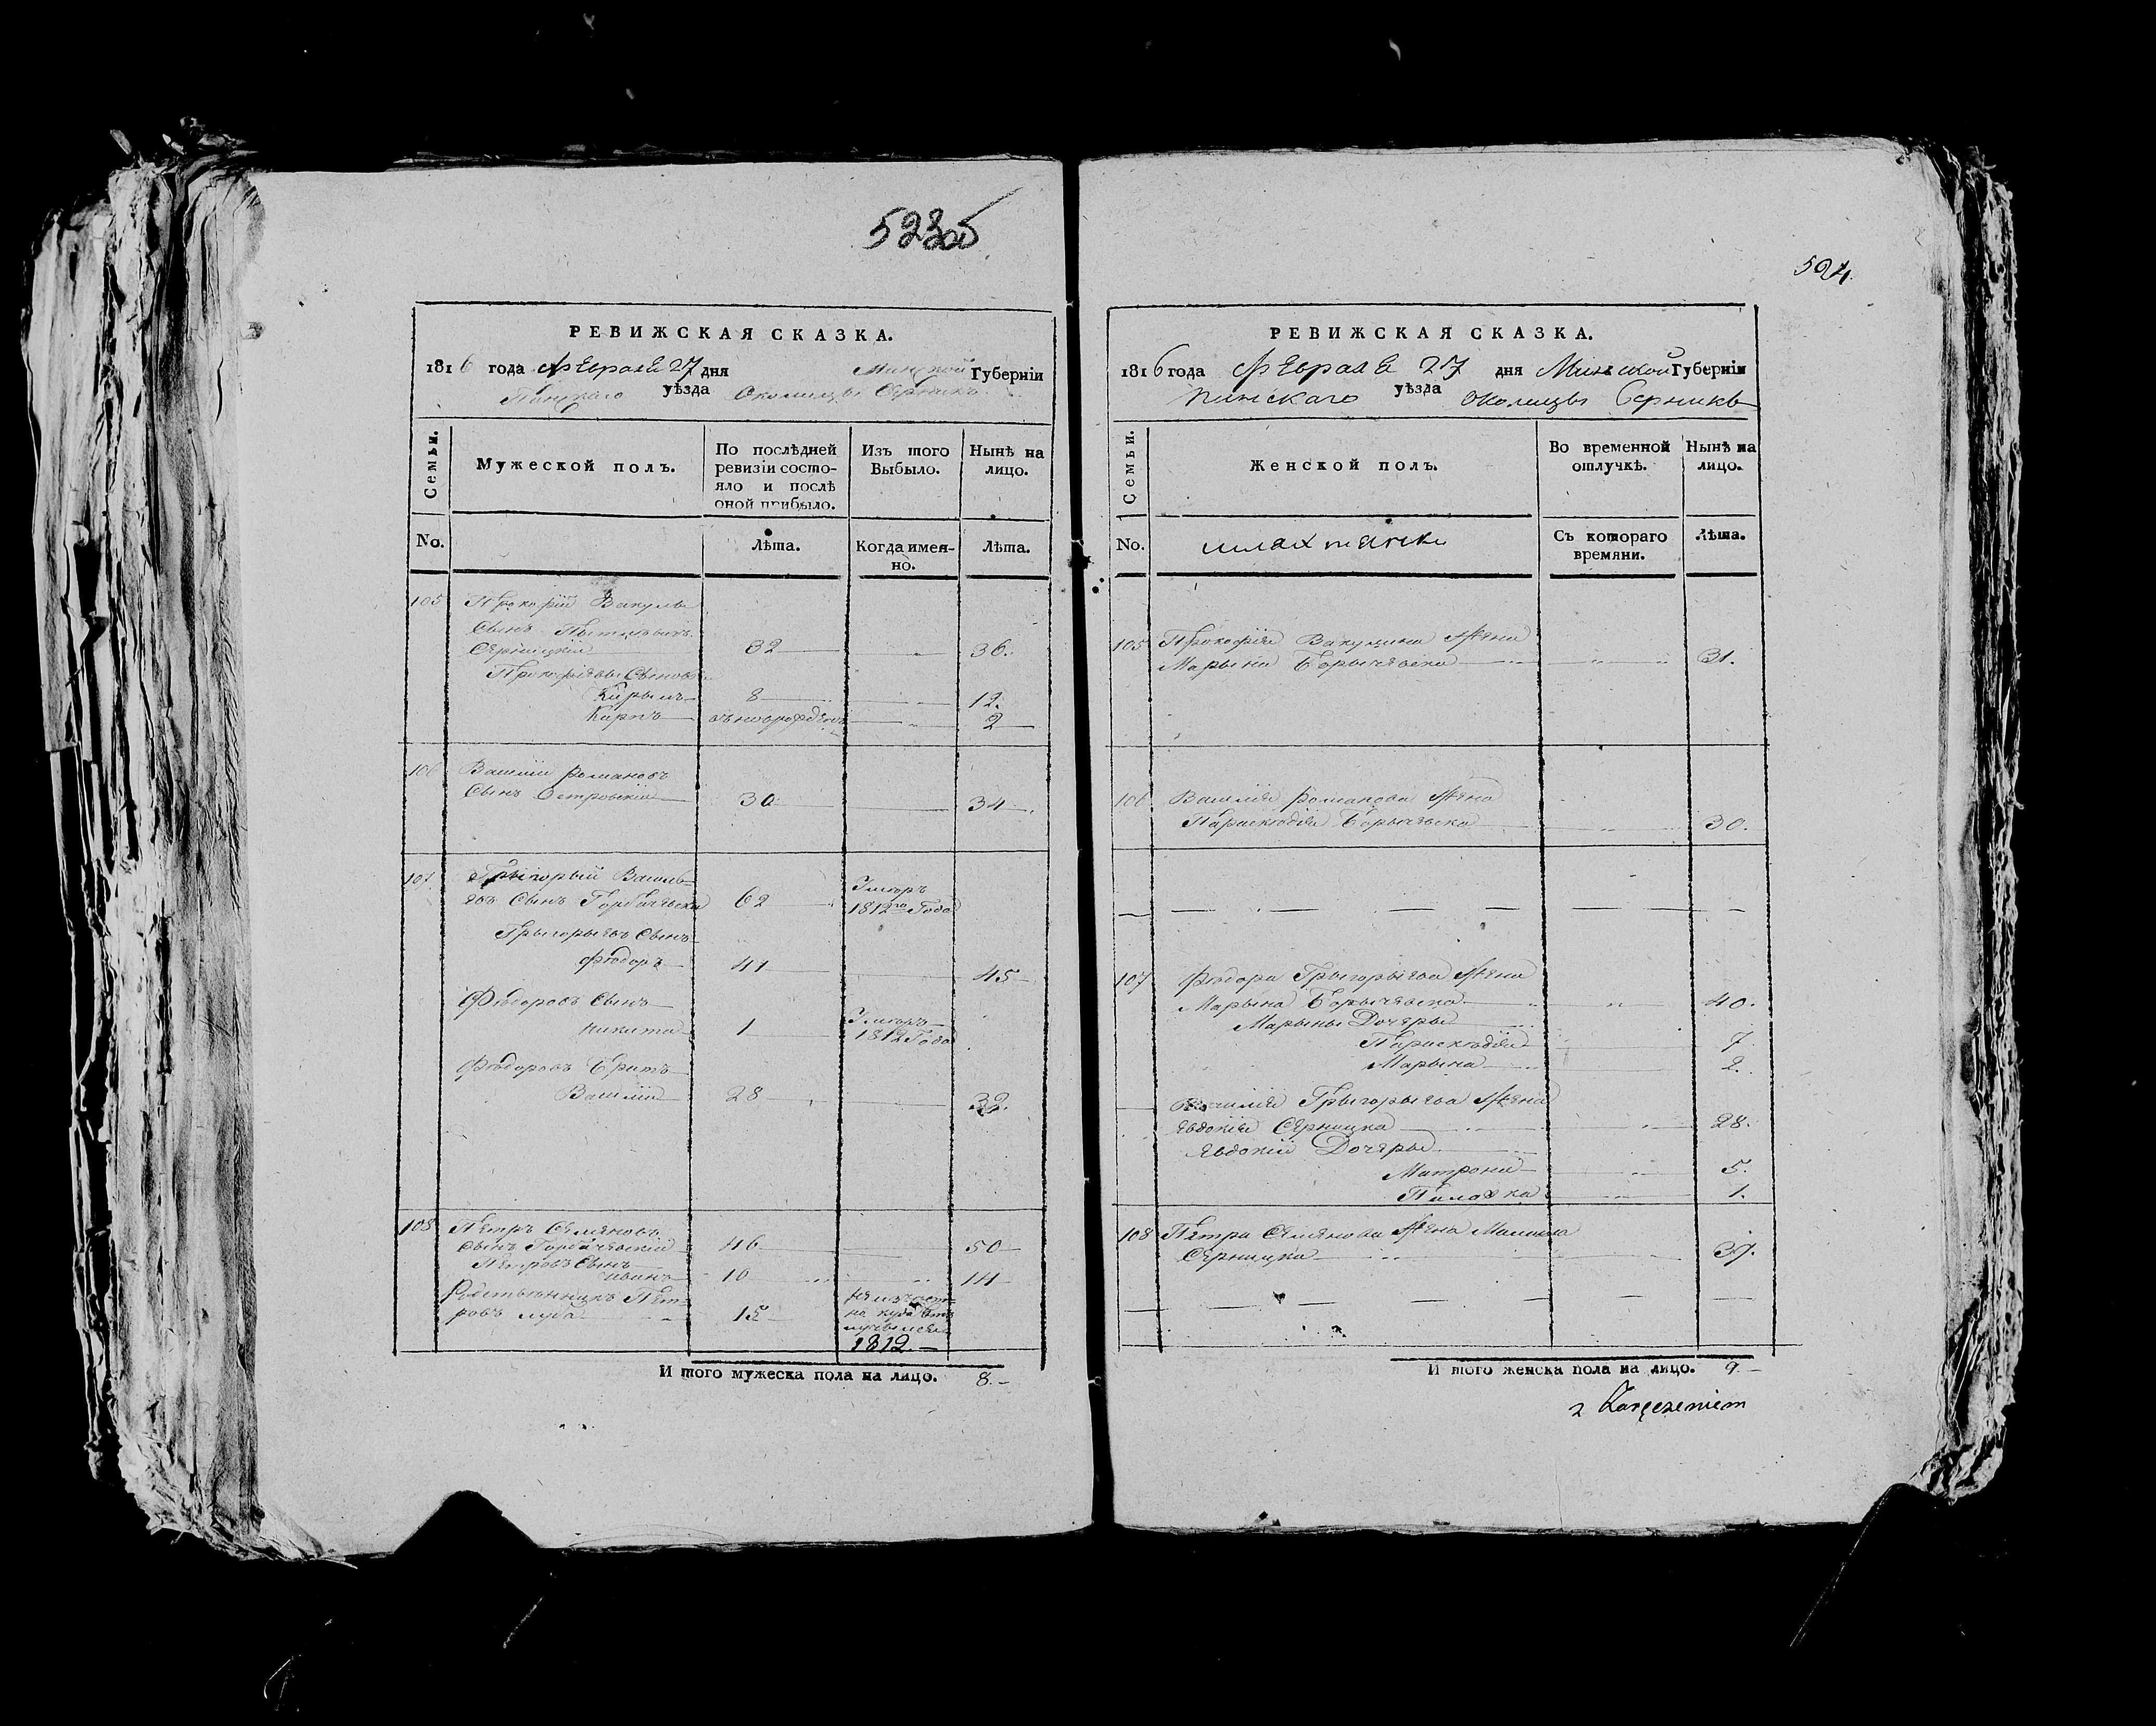 523об
РЕВИЖСКАЯ СКАЗКА.
1816 года Февраля 27 дня Минской Губерніи
Пинскаго уѣзда Околицы Серникъ
Семьи.
Мужеской полъ.
По послѣдней ревизіи состо-
яло и послѣ
оной прибыло.
Изъ того
Выбыло.
Нынѣ на
лицо.
No.
Лѣта.
Когда имен-
но.
Лѣта.
105 Прокофій Вакулы
Сынъ
Серницкій 32 36.
Прокофіевы Сыновья
8 12.
Карпъ новорожденъ 2
106 Василій Романовъ
Сынъ Островскій 30 34
107 Григорый Василь-
евъ Сынъ Горбачевскій 62 Умеръ
1812го Года
Григорыевъ Сынъ
Фіодоръ 41 45
Фіодоровъ Сынъ
никита 1 Умеръ
1812 Года
Фіодоровъ Братъ
Василій 28 32.
108 Петръ Семеновъ
Сынъ Горбачевскій 46 50
Петровъ Сынъ
иванъ 10 14
Родственникъ Пет-
ровъ 15 неизвест-
но куда
1812.
И того мужеска пола на лицо. 8.
524.
РЕВИЖСКАЯ СКАЗКА.
1816 года Февраля 27 дня Минской Губерніи
Пинскаго уѣзда околицы Серникъ
Семьи.
Женской полъ.
Во временной
отлучкѣ.
Нынѣ на
лицо.
No.
шляхтянки
Съ котораго
времяни.
Лѣта.
105 Прокофія Вакулина Жена
Марына Борычевска 31.
106 Василія Романова Жена
Параскѣвдія Борычевска 30.
107 Фіодора Григорыева Жена
Марына Борычевска 40.
Марыны Дочеры
Параскѣвдія 7.
Марына 2.
Василія Григорыева Жена
Евдокія Серницка 28.
Евдокіи Дочеры
Матрона 5.
1.
108 Петра Семенова Жена
Серницка 37.
И того женска пола на лицо. 9.
z